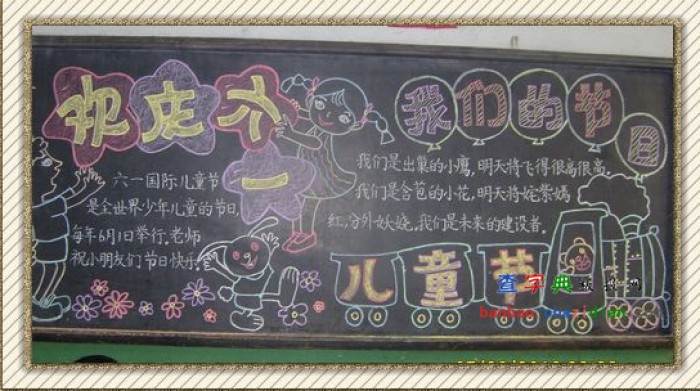 欢庆六
一
六一国际儿童节
是全世界少年儿童的节日,
每年6月1日举行.老师
祝小朋友们节日快乐.
我们的节日
我们是出巢的小鹰,明天将飞得很高很高.
我们是含苞的小花,明天将姹紫嫣
红,分外妖娆.我们是未来的建设者.
儿童节
查字典